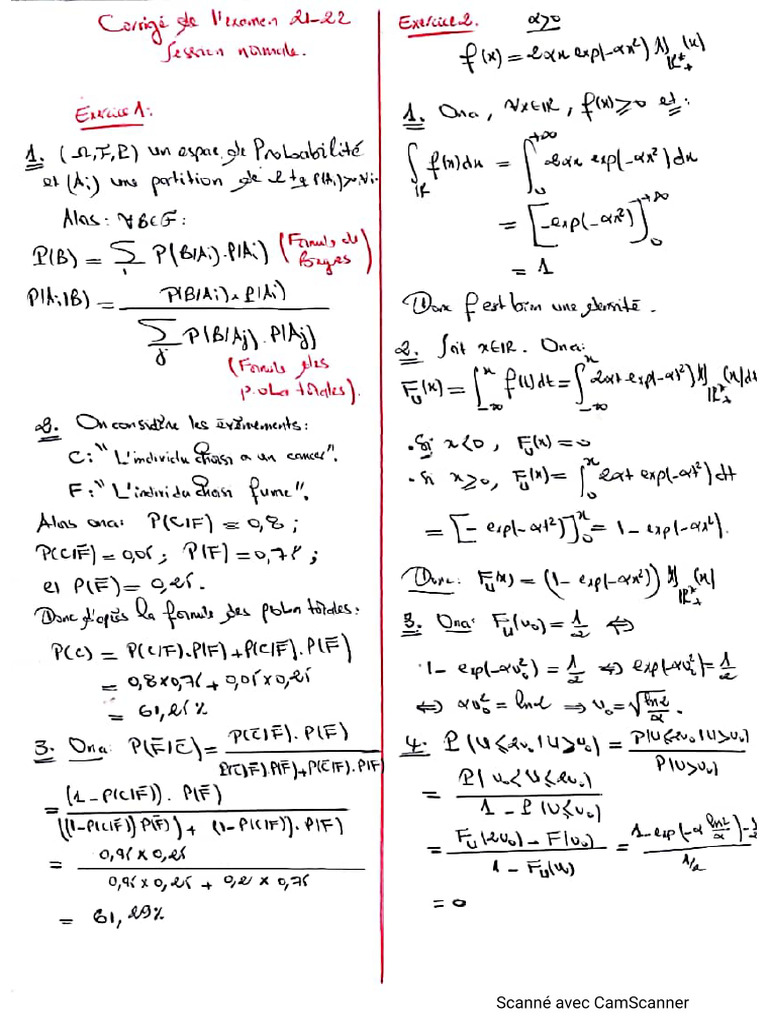 Corrigé de l'examen 21-22
Session normale.
Exercice 1:
1. (Ω,F,P) un espace de Probabilité
et (Ai) une partition de Ω tq P(Ai)>0 ∀i.
Alors: ∀B∈F:
P(B) = Σ_i P(B/Ai).P(Ai) (Formule de
Bayes)
P(Ai/B) = P(B/Ai) × P(Ai) / Σ_j P(B/Aj).P(Aj)
(Formule des
proba totales).
2. On considère les évènements:
C: "L'individu choisi a un cancer".
F: "L'individu choisi fume".
Alors on a: P(C/F) = 0,8 ;
P(C/F̄) = 0,05 ; P(F) = 0,75 ;
et P(F̄) = 0,25.
Donc d'après la formule des proba totales:
P(C) = P(C/F).P(F) + P(C/F̄).P(F̄)
= 0,8×0,75 + 0,05×0,25
= 61,25%
3. On a: P(F̄/C̄) = P(C̄/F̄).P(F̄) / P(C̄/F̄).P(F̄)+P(C̄/F).P(F)
= (1-P(C/F̄)).P(F̄) / ((1-P(C/F̄))P(F̄)) + (1-P(C/F)).P(F)
= 0,95×0,25 / 0,95×0,25 + 0,2×0,75
= 61,29%
Exercice 2. α>0
f(x) = 2αx exp(-αx²) 𝟙_ℝ*₊(x)
1. On a, ∀x∈ℝ, f(x)≥0 et:
∫_ℝ f(x)dx = ∫_0^{+∞} 2αx exp(-αx²)dx
= [-exp(-αx²)]_0^{+∞}
= 1
Donc f est bien une densité.
2. Soit x∈ℝ. On a:
F_U(x) = ∫_{-∞}^x f(t)dt = ∫_{-∞}^x 2αt exp(-αt²) 𝟙_ℝ*₊(x)dt
• Si x<0, F_U(x) = 0
• Si x≥0, F_U(x) = ∫_0^x 2αt exp(-αt²) dt
= [-exp(-αt²)]_0^x = 1 - exp(-αx²).
Donc: F_U(x) = (1 - exp(-αx²)) 𝟙_ℝ*₊(x)
3. On a: F_U(u₀) = 1/2 ⇔
1 - exp(-αu₀²) = 1/2 ⇔ exp(-αu₀²) = 1/2
⇔ αu₀² = ln2 ⇒ u₀ = √(ln2/α).
4. P(U≤2u₀/U>u₀) = P(U≤2u₀,U>u₀) / P(U>u₀)
= P(u₀<U≤2u₀) / 1 - P(U≤u₀)
= F_U(2u₀) - F(u₀) / 1 - F_U(u₀) = 1-exp(-α ln2/α)-1/2 / 1/2
= 0
Scanné avec CamScanner